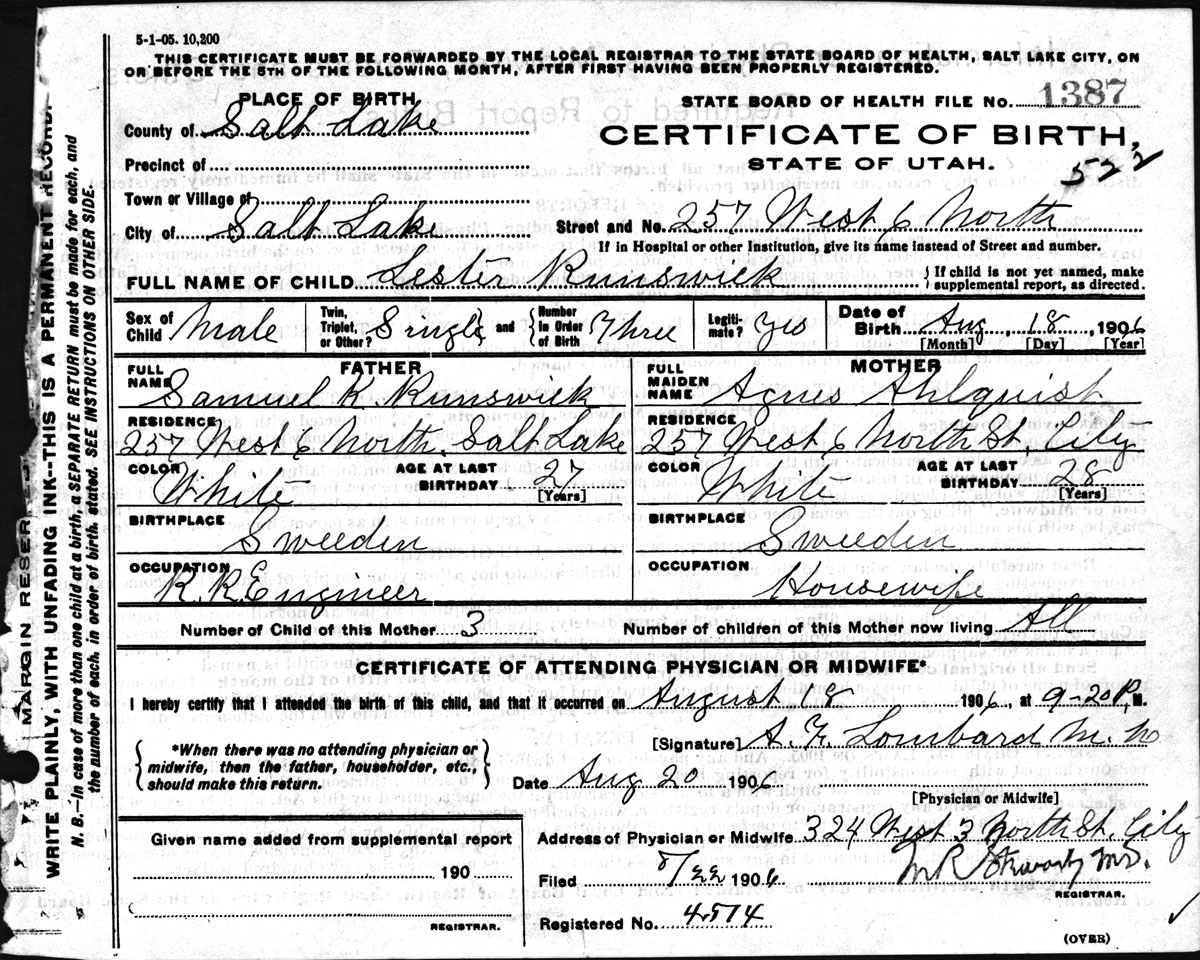 5-1-05. 10,200
THIS CERTIFICATE MUST BE FORWARDED BY THE LOCAL REGISTRAR TO THE STATE BOARD OF HEALTH, SALT LAKE CITY, ON
OR BEFORE THE 5TH OF THE FOLLOWING MONTH, AFTER FIRST HAVING BEEN PROPERLY REGISTERED.
PLACE OF BIRTH
STATE BOARD OF HEALTH FILE NO. 1387
County of Salt Lake
CERTIFICATE OF BIRTH,
Precinct of
STATE OF UTAH.
522
Town or Village of
City of Salt Lake Street and No. 257 West 6 North
If in Hospital or other Institution, give its name instead of Street and number.
FULL NAME OF CHILD Lester Runswick { If child is not yet named, make
supplemental report, as directed.
Sex of Child Male Twin, Triplet, or Other? Single } and { Number in Order of Birth Three Legiti-mate? Yes Date of Birth Aug 18, 1906
[Month] [Day] [Year]
FATHER MOTHER
FULL NAME Samuel K. Runswick FULL MAIDEN NAME Agnes Ahlquist
RESIDENCE RESIDENCE
257 West 6 North. Salt Lake 257 West 6 North St, City
COLOR White AGE AT LAST BIRTHDAY 27 [Years] COLOR White AGE AT LAST BIRTHDAY 28 [Years]
BIRTHPLACE Sweeden BIRTHPLACE Sweeden
OCCUPATION R. R. Engineer OCCUPATION Housewife
Number of Child of this Mother 3 Number of children of this Mother now living All
CERTIFICATE OF ATTENDING PHYSICIAN OR MIDWIFE*
I hereby certify that I attended the birth of this child, and that it occurred on August 18 1906, at 9-20 P. M.
{ *When there was no attending physician or
midwife, then the father, householder, etc.,
should make this return. }
[Signature] A. F. Lombard M. D
Date Aug 20 1906
[Physician or Midwife]
Given name added from supplemental report
Address of Physician or Midwife 324 West 3 North St. City
190
Filed 8/22 1906 M R Stewart, MD.
REGISTRAR.
Registered No. 4514
REGISTRAR.
(OVER)
MARGIN RESER
WRITE PLAINLY, WITH UNFADING INK--THIS IS A PERMANENT RECORD.
N. B.—In case of more than one child at a birth a SEPARATE RETURN must be made for each, and
the number of each, in order of birth, stated. SEE INSTRUCTIONS ON OTHER SIDE.